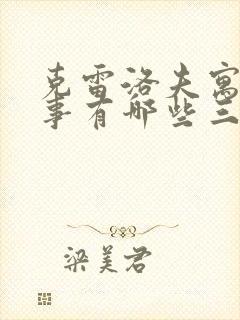 克雷洛夫寓
事有哪些三
梁美君